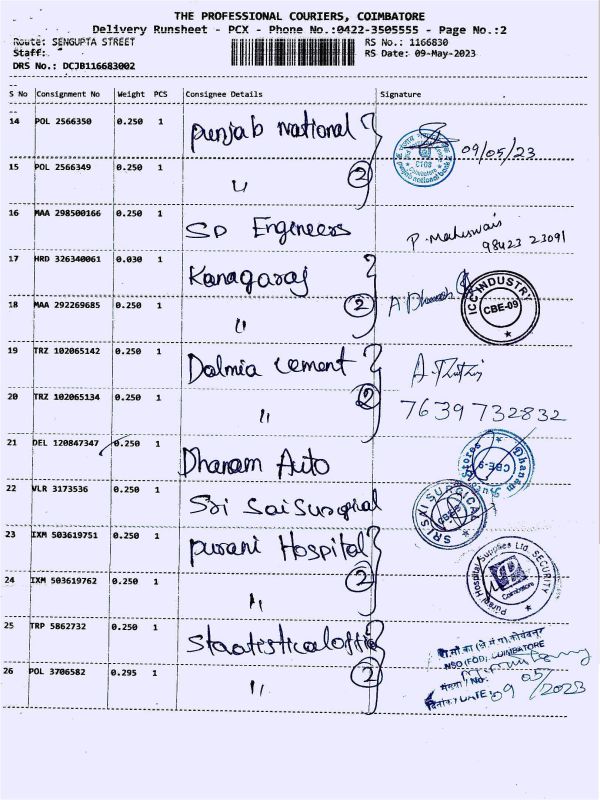 THE PROFESSIONAL COURIERS, COIMBATORE
Delivery Runsheet - PCX - Phone No.:0422-3505555 - Page No.:2
Route: SENGUPTA STREET
RS No.: 1166830
Staff:
RS Date: 09-May-2023
DRS No.: DCJB116683002
S No Consignment No Weight PCS Consignee Details Signature
14 POL 2566350 0.250 1 Punjab National
09/05/23
CTOB
Coimbatore
punjab national bank
15 POL 2566349 0.250 1 " 2
16 MAA 298500166 0.250 1 SD Engineers
P. Maheswari
98423 23091
17 HRD 326340061 0.030 1 Kanagaraj
ICC INDUSTRY
CBE-09
18 MAA 292269685 0.250 1 " 2
19 TRZ 102065142 0.250 1 Dalmia cement
20 TRZ 102065134 0.250 1 " 2
7639732832
21 DEL 120847347 0.250 1 Dhanam Auto
Dhanam Auto Stores
CBE-9
22 VLR 3173536 0.250 1 Sri Sai Surgical
SRI SAI SURGICAL
23 IXM 503619751 0.250 1 Purani Hospital
Purani Hospital Supplies Ltd. SECURITY
Coimbatore
24 IXM 503619762 0.250 1 " 2
25 TRP 5862732 0.250 1 Staatistical office
NSO (FOD), COIMBATORE
26 POL 3706582 0.295 1 " 2
संख्या / NO.
दिनांक / DATE: 09/05/2023